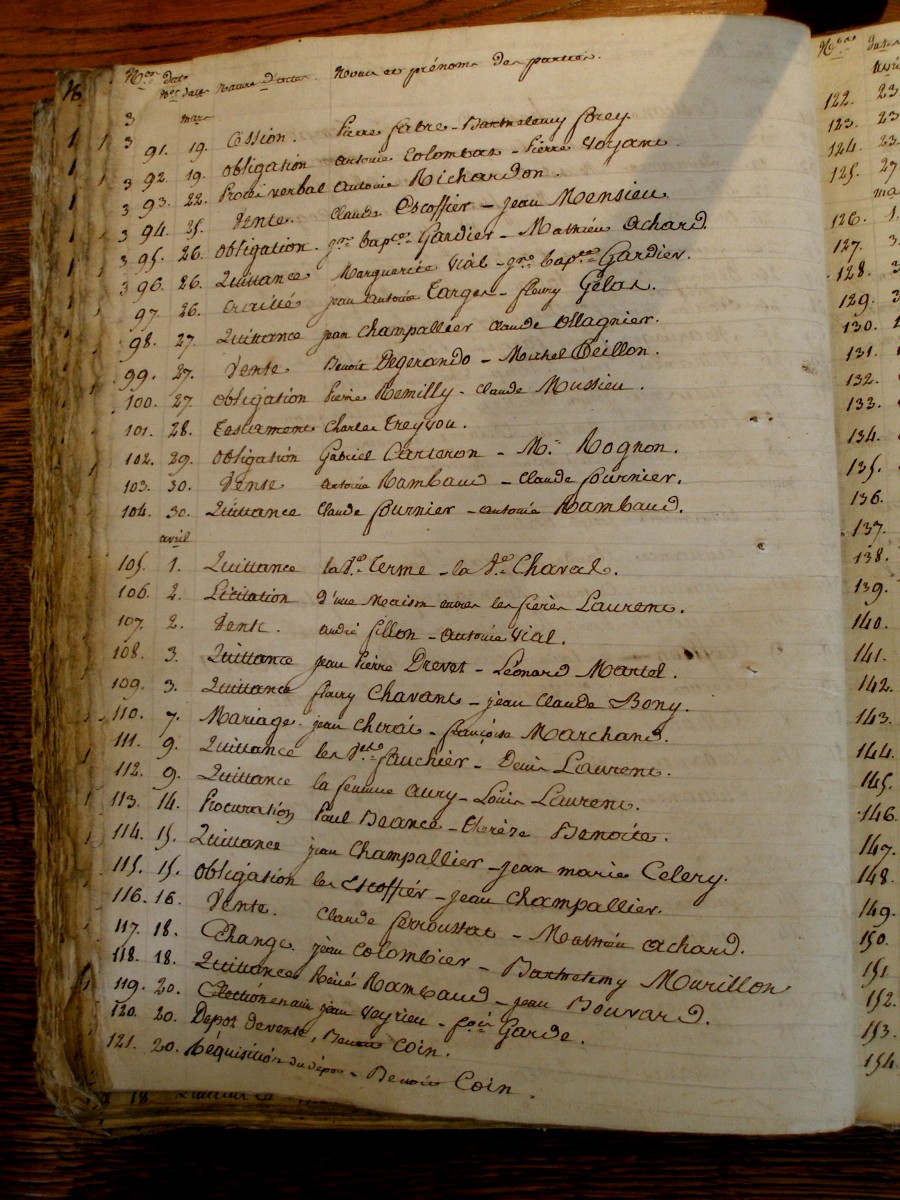 Nos. date nature d'actes. Noms et prénoms des parties.
mars
91. 19. Cession. Pierre fabre - Barthelemy forey.
92. 19. obligation antoine Colombat - Pierre Voyant.
93. 22. Procès verbal antoine Richardon.
94. 25. Vente. Claude Escoffier - jean Monsieu.
95. 26. obligation. Gardier - Mathieu achard.
96. 26. Quittance Marguerite Vial - Gardier.
97. 26. traitté jean antoine Targe - fleury Gélas.
98. 27. Quittance jean Champallier Claude Ollagnier.
99. 27. Vente Benoit Degerando - Michel Teillon.
100. 27. obligation Pierre Remilly - Claude Mussieu.
101. 28. testament Charles Treyvou.
102. 29. obligation Gabriel Carteron - M. Rognon.
103. 30. Vente antoine Rambaud - Claude fournier.
104. 30. Quittance Claude fournier - antoine Rambaud.
avril
105. 1. Quittance la Ve. Terme - la Ve. Chaval.
106. 2. Licitation d'une Maison entre les freres Laurent.
107. 2. Vente. andré fillon - antoine Vial.
108. 3. Quittance jean Pierre Drevet - Léonard Martel.
109. 3. Quittance fleury Chavant - jean Claude Bony.
110. 7. Mariage. jean Chirat - françoise Marchand.
111. 9. Quittance les fauchier - Denis Laurent.
112. 9. Quittance la femme aury - Louis Laurent.
113. 14. Procuration Paul Beance - therèze Benoite.
114. 15. Quittance jean Champallier - jean marie Celery.
115. 15. obligation les Escoffier - jean Champallier.
116. 16. Vente. Claude ferroussat - Mathieu achard.
117. 18. Change jean Colombier - Barthelemy Murillon
118. 18. Quittance Réné Rambaud - jean Bouvard.
119. 20. Election en ami jean Veyrieu - Garde.
120. 20. Depot de vente, Benoit Coin.
121. 20. Réquisition du dépot - Benoit Coin.
Nos. date
avril
122. 23
123. 23
124. 23
125. 27
mai
126. 1.
127. 3
128. 3
129. 3
130.
131.
132.
133.
134.
135.
136.
137.
138.
139.
140.
141.
142.
143.
144.
145.
146.
147.
148.
149.
150.
151
152.
153.
154.